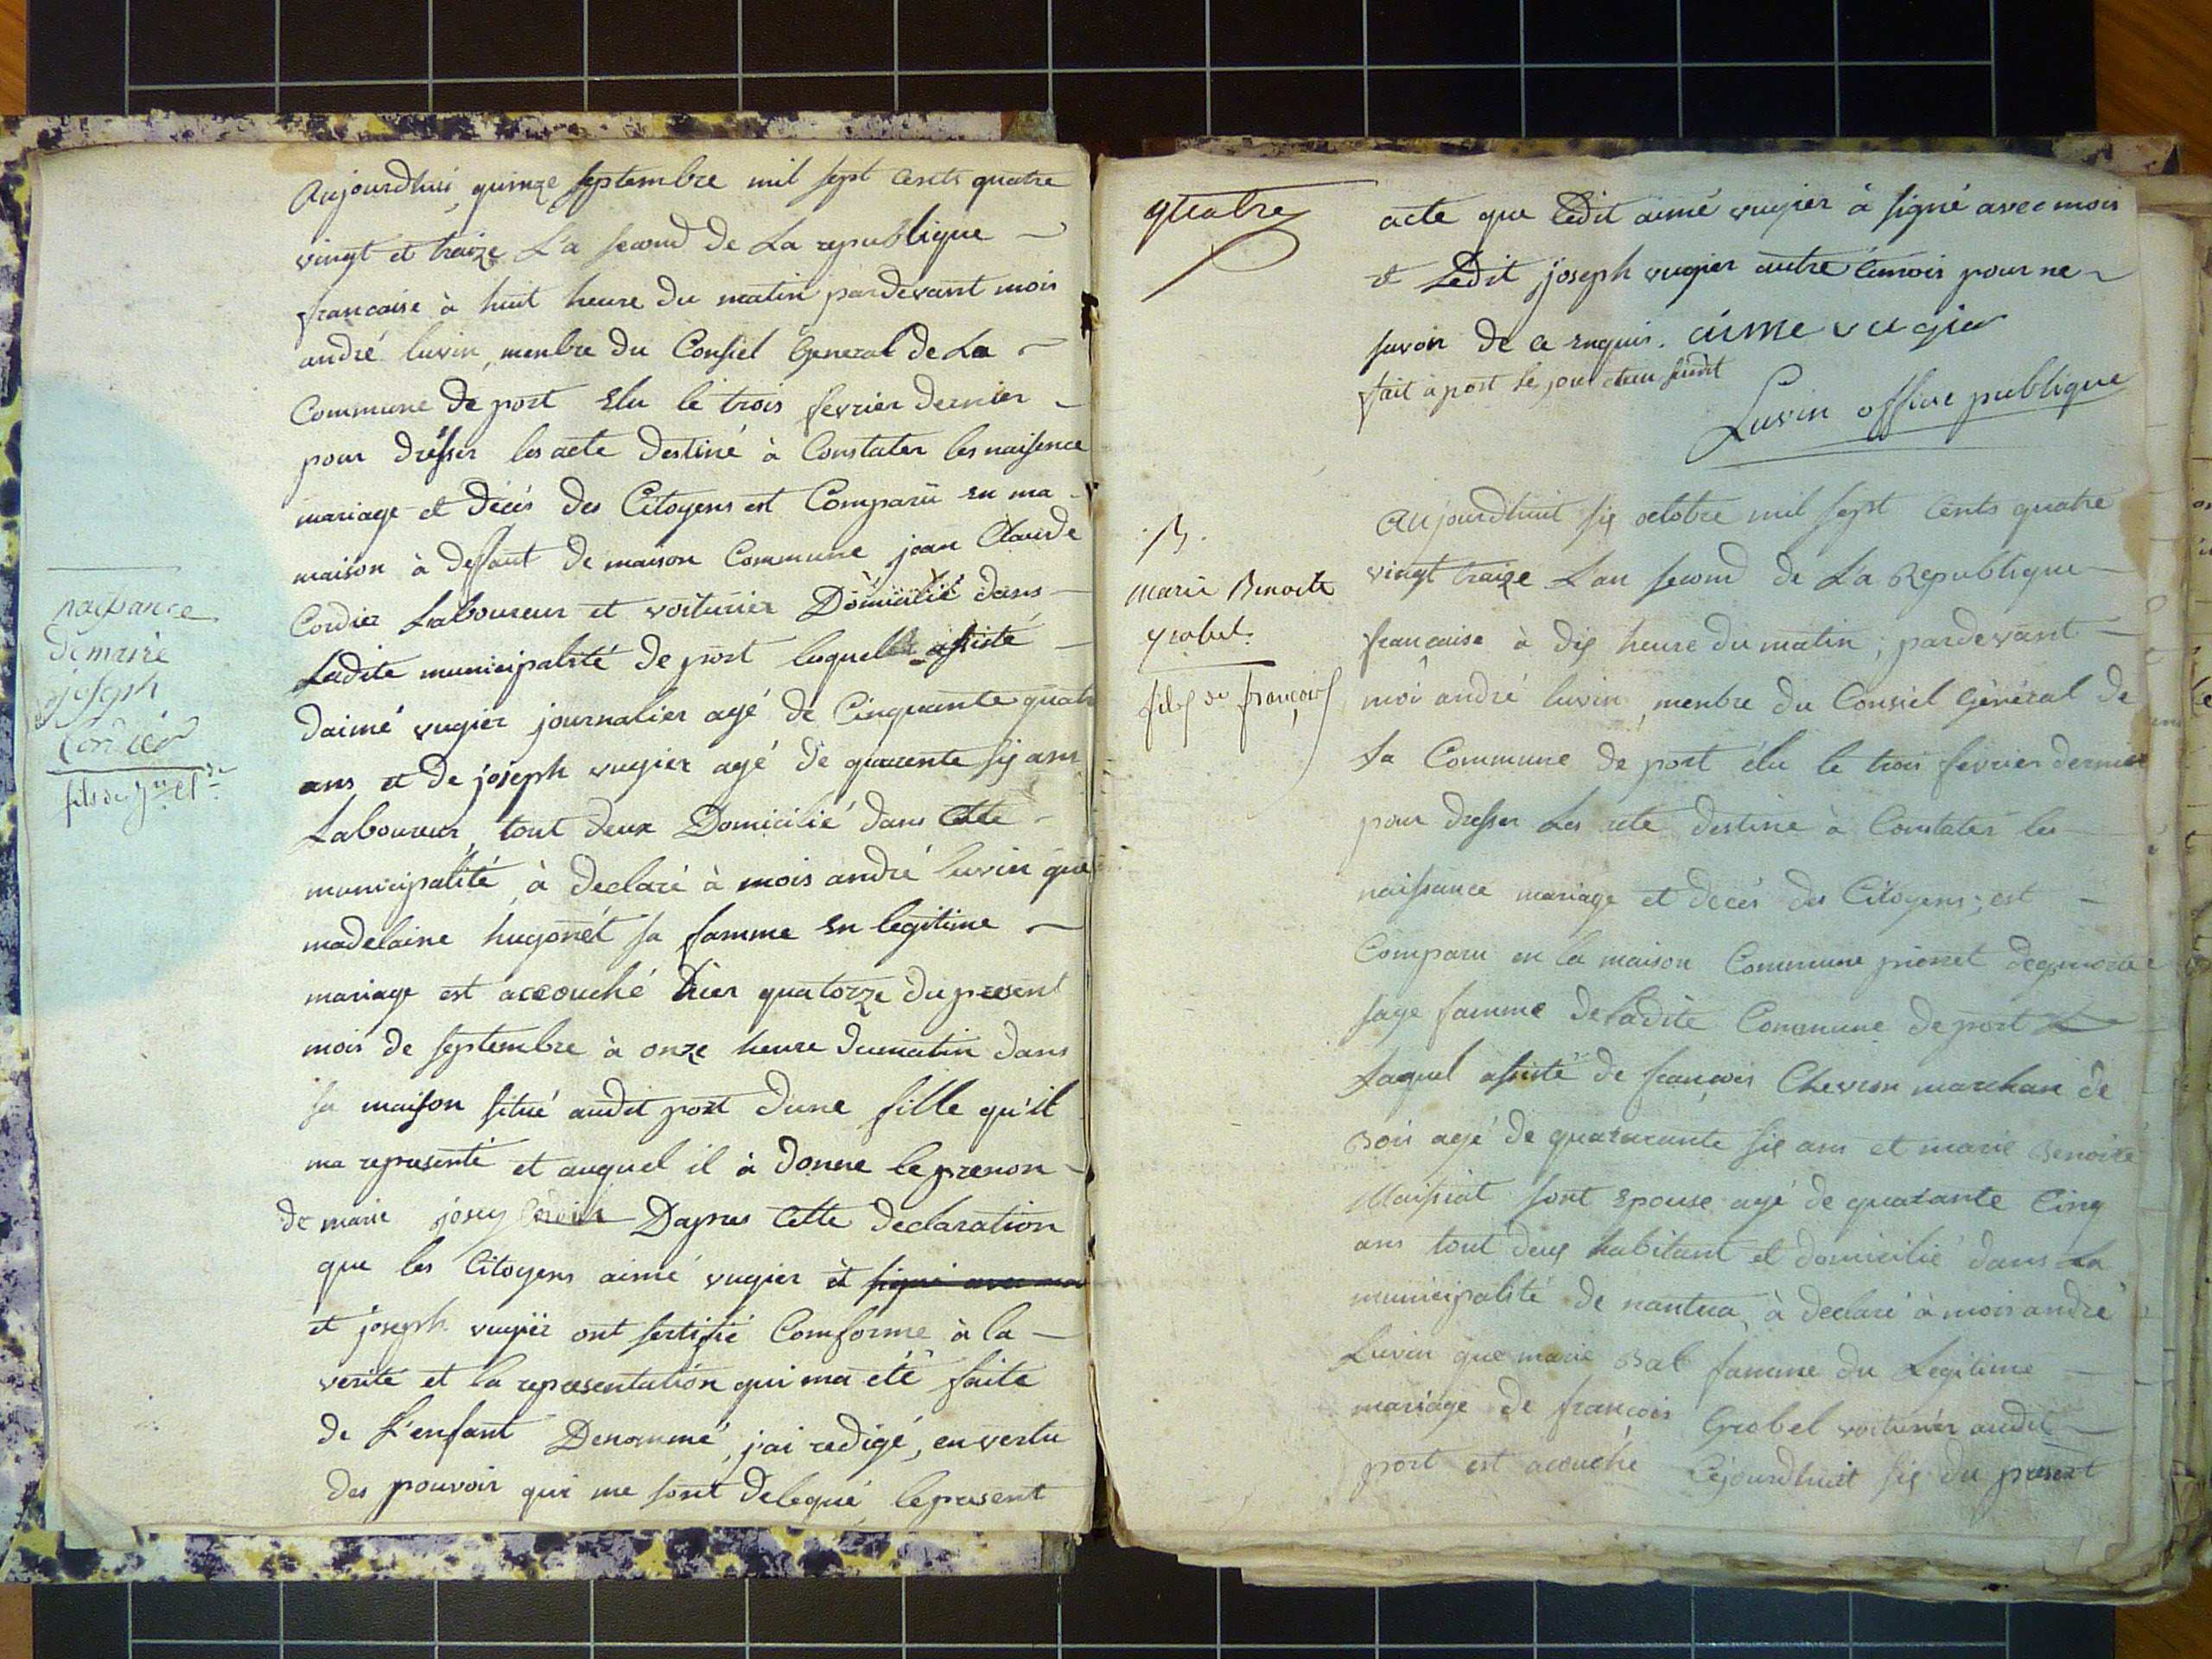 Aujourdhui quinze septembre mil sept cents quatre
vingt et traize La second de La republique
francaise à huit heure du matin pardevant mois
andré luvin, menbre du Consiel General de La
Commune de port Elu le trois fevrier dernier
pour drésser les acte destiné à Constater les naisence
mariage et décés des Citoyens est Comparu en ma
maison à deffaut de maison Commune jean Claude
Cordier Laboureur et voiturier Domicilié dans
Ladite municipalité de port lequel assisté
daimé vugier journalier agé de Cinquante quatre
ans et de joseph vugier agé de quarente six ans
Laboureur, tout deux Domicilié dans cette
municipalité, à declaré à mois andré luvin que
madelaine hugonét sa famme en legitime
mariage est accouché hier quatorze du present
mois de septembre à onze heure dumatin dans
sa maison situé audit port dune fille qu'il
ma representé et auquel il à donné le prenon
de marie josep Cordier Dapres Cette declaration
que les Citoyens aimé vugier et signé avec moi
et joseph vugier ont sertifié Comforme à la
verite et la representation qui ma été faite
de L'enfant Denommé, j'ai redigé, en vertu
des pouvoir qui me sont delegué le present
naissance
de marie
joseph
Cordier
fils de jn. Cl.de
quatre
acte que ledit aimé vugier à signé avec mois
et Ledit joseph vugier autre temois pour ne
savoir de ce enquis. aime vugier
fait à port le jour et an susdit
Luvin office publique
marie Benoite
grobel.
fils de françois
Aujourdhuit six octobre mil sept Cents quatre
vingt traize L'an second de La Republique
francaise à dix heure du matin, pardevant
moi andré luvin, menbre du Consiel Général de
La Commune de port élu le trois fevrier dernier
pour dresser Les acte destiné à Constater les
naissance mariage et décés des Citoyens; est
Comparu en la maison Commune pierret
sage famme de Ladite Commune de port
Laquel assisté de francois Chevron marchan de
Bois agé de quatarante six ans et marie Benoite
Maissiat sont Epouse agé de quatante Cinq
ans tout deux habitant et domicilié dans La
municipalité de nantua, à declaré à mois andré
Luvin que marie Bal famme du Legitime
mariage de françois Grobel voiturier audit
port est acouché Cejourdhuit six du present